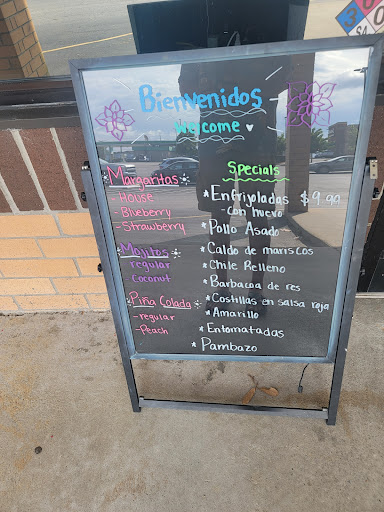 Bienvenidos
Welcome
Margaritas
- House
- Blueberry
- Strawberry
Mojitos
regular
Coconut
Piña Colada
- regular
- Peach
Specials
* Enfrijoladas $9.99
- con huevo
* Pollo Asado
* Caldo de mariscos
* Chile Relleno
* Barbacoa de res
* Costillas en salsa roja
* Amarillo
* Entomatadas
* Pambazo
3
0
SA